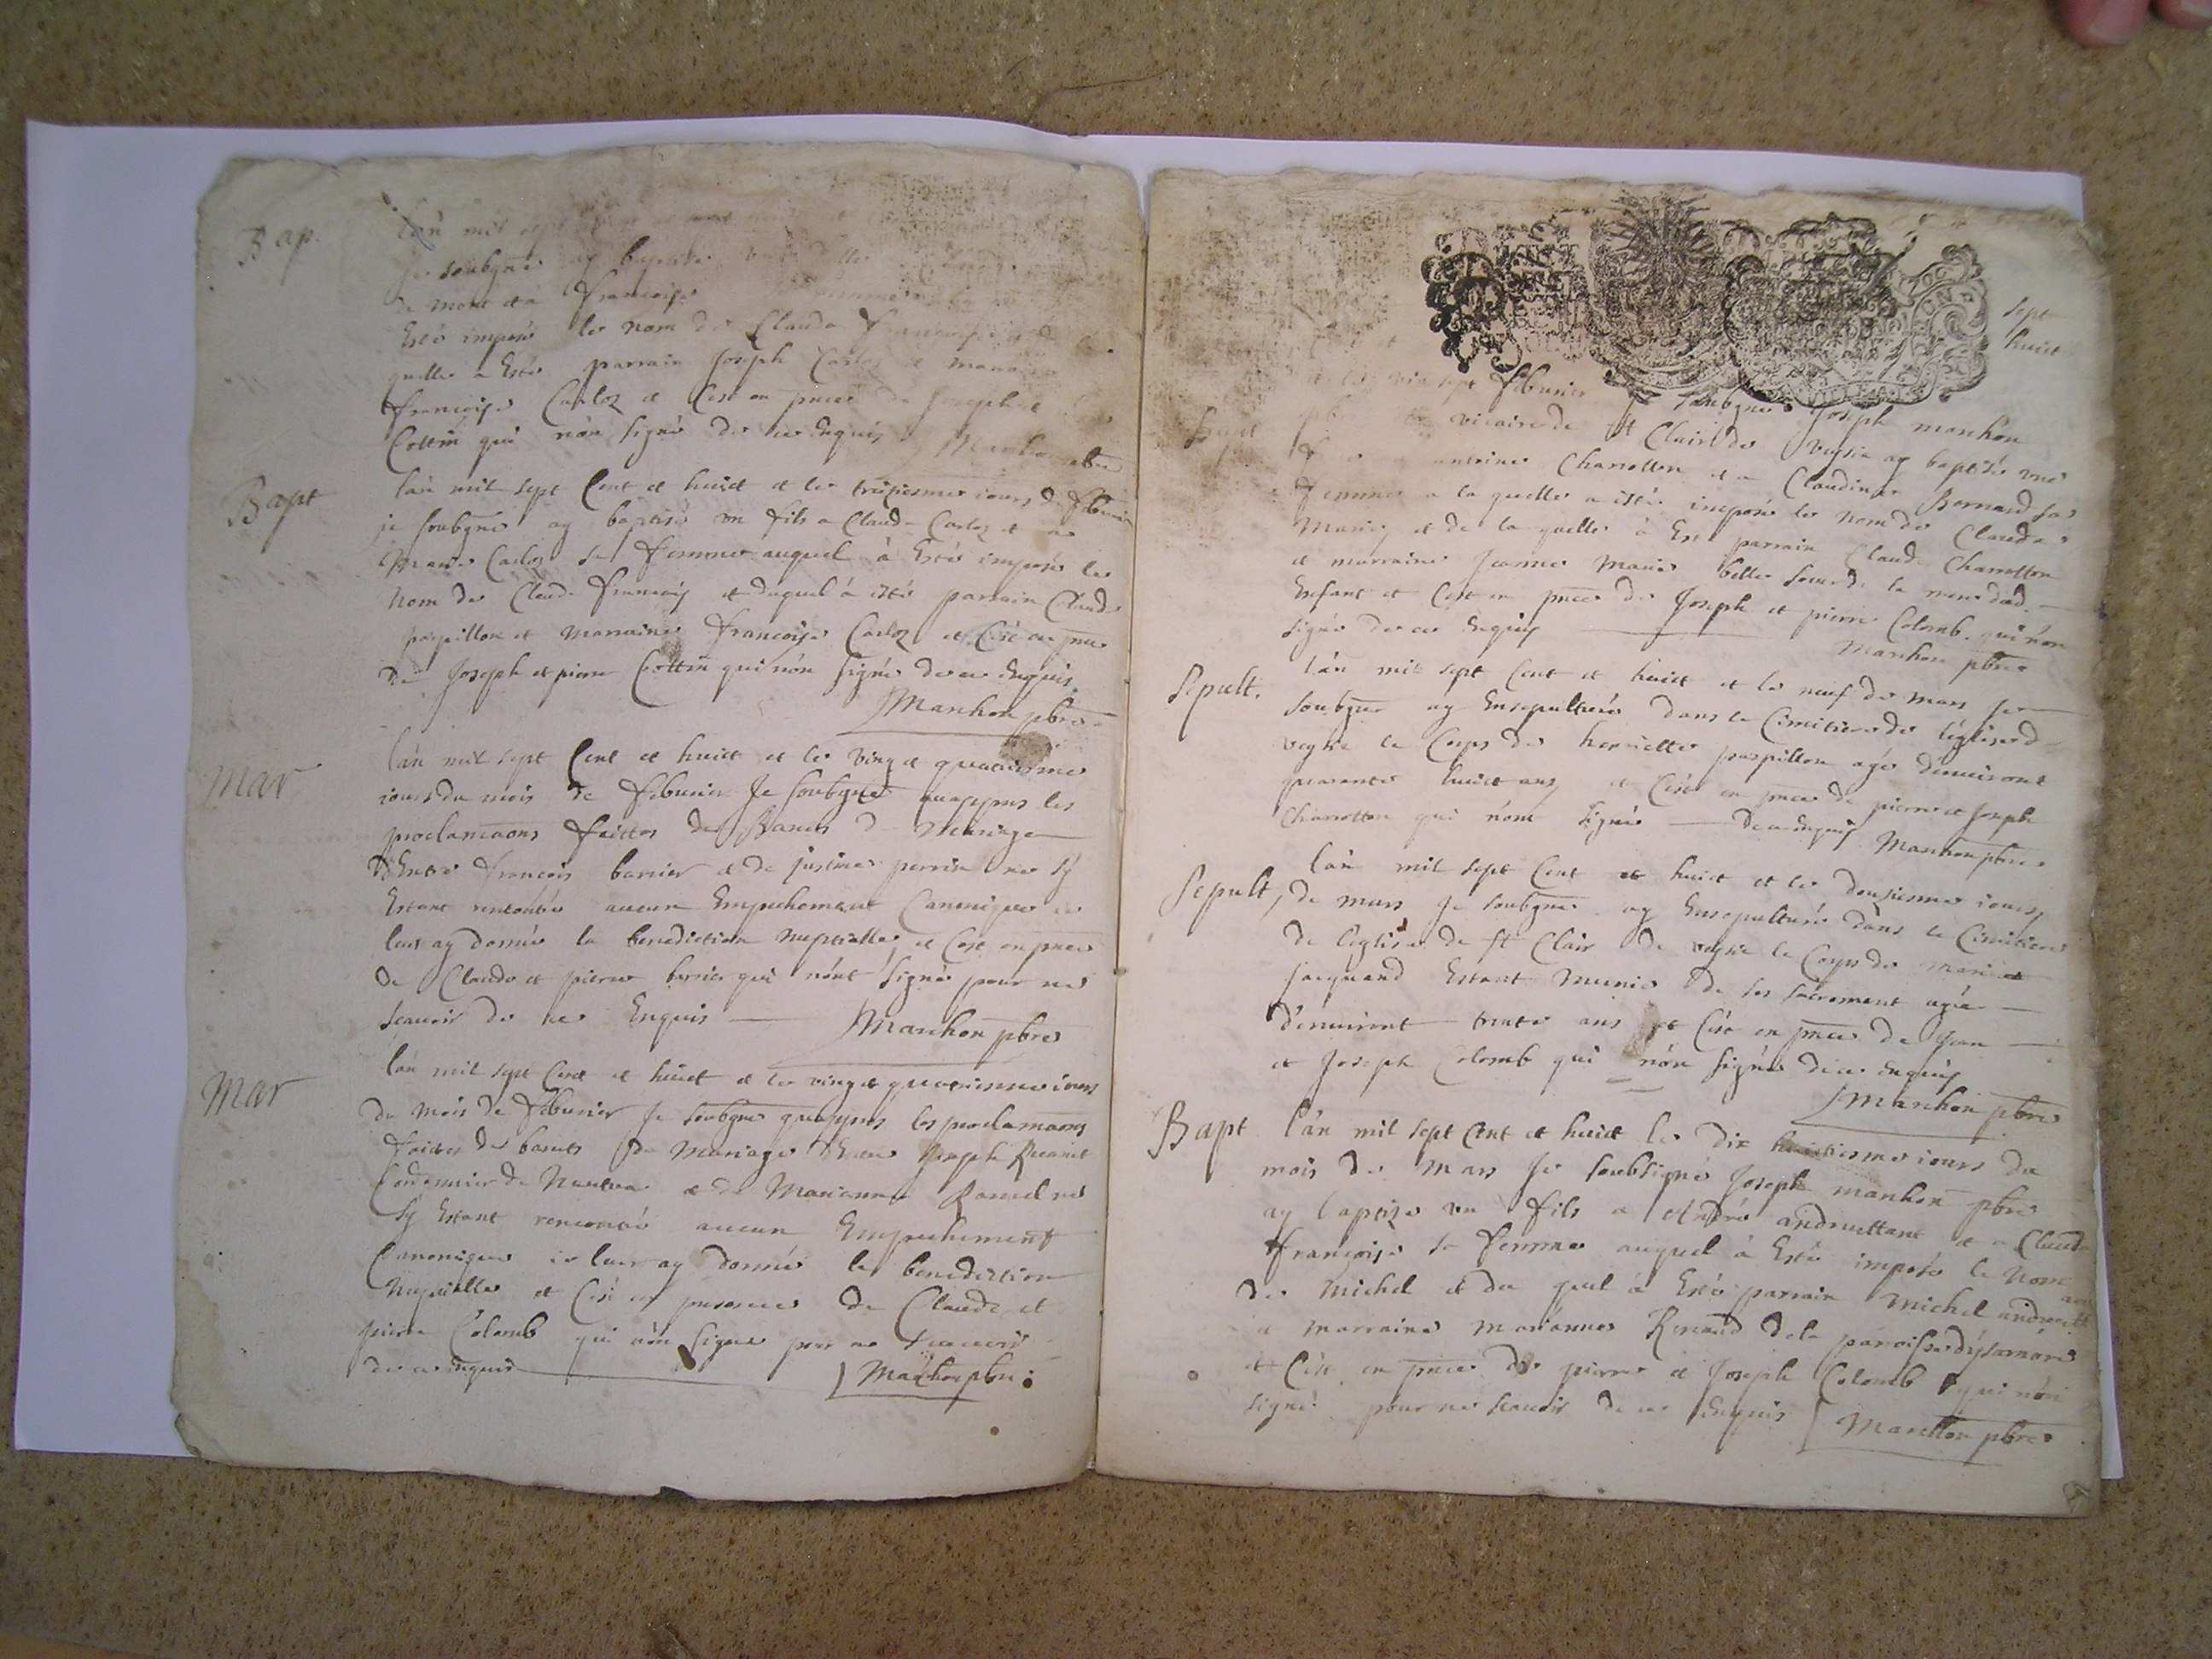 Bap.
lan mil sept
Je soubzne ay baptisé une fille
de mont et a francoise
Esté imposé le nom de Claude francoise de la
quelle a Esté parrain Joseph Carloz et marraine
francoise Carloz et Cest en pnce de Joseph et
Cottin qui nón signé de ce Enquis Manhon pbre
Bapt
lán mil sept Cent et huict et le troisiesme iours de feburier
je soubzne ay baptisé un fils a Claude Carloz et a
Marie Carloz sa femme auquel à Esté imposé le
Nom de Claude francois et duquel à esté parrain Claude
papillon et marraine francoise Carloz et Cést en pnce
de Joseph et pierre Cottin qui nón signé de ce Enquis
Manhon pbre
Mar
lán mil sept Cent et huict et le vingt quatriesme
iours du mois de feburier Je soubzne quappres les
proclamaons faittes des Bancts de Mariage
dEntre francois barnier et de justine perrin ne sÿ
Estant rencontré aucun Empechement Canonique ie
leur ay donné la benediction nuptialle et Cest en pnce
de Claude et pierre bernier qui nónt signé pour ne
scauoir de ce Enquis Manhon pbre
Mar
lán mil sept Cent et huict et le vingt quatriesme iours
du mois de feburier Je soubzne quappres les proclamaons
faictes des bancts de Mariage Entre Joseph
Cordonnier de Nantua et de Marianne Ramel ne
sÿ Estant rencontré aucun Empechement
Canonique ie leur ay donné la benediction
Nuptialle et Cést en presence de Claude et
pierre Colomb qui nón signé pour ne scauoir
de ce enquis Manhon pbre
sept
huict
et le vinsept feburier Je soubzne Joseph manhon
Bapt
pbre vicaire de st Clair de veysia ay baptisé une
f antoine Charretton et a Claudine Bernand sa
femme a la quelle a esté imposé le nom de Claude
Marie et de la quelle à Esté parrain Claude Charretton
et marraine Jeanne Marie belle soeur de la mere dud.
Enfant et Cest en pnce de Joseph et pierre Colomb qui nón
signé de ce Enquis Manhon pbre
Sepult.
lán mil sept Cent et huict et le neuf de mars Je
soubzne ay Ensepulturé dans le Cimitiere de léglise de
veysie le Corps de henriette papillon agé denuiront
quarante huict ans et Cést en pnce de pierre et Joseph
Charretton qui nónt signé de ce enquis Manhon pbre
Sepult,
lán mil sept Cent et huict et le douziesme iours
de mars Je soubzne ay Ensepulturé dans le Cimitiere
de léglise de st Clair de veysie le Corps de marie
Jacquand Estant Munie de ses sacrement agée
dénuiront trente ans et Cést en pnce de Jean
et Joseph Colomb qui nón signé de ce enquis
Manhon pbre
Bapt
lán mil sept Cent et huict le dix huictiesme iours du
mois de Mars Je soubsigné Joseph manhon pbre
ay baptize un fils a André andruettant et a Claude
françoise sa femme auquel à Esté imposé le Nom
de Michel et du quel à Esté parrain Michel andruett
et marraine marianne Renaud dela paroisse dÿsarnore
et Cést en pnce de pierre et Joseph Colomb qui nón
signé pour ne scauoir de ce Enquis Manhon pbre